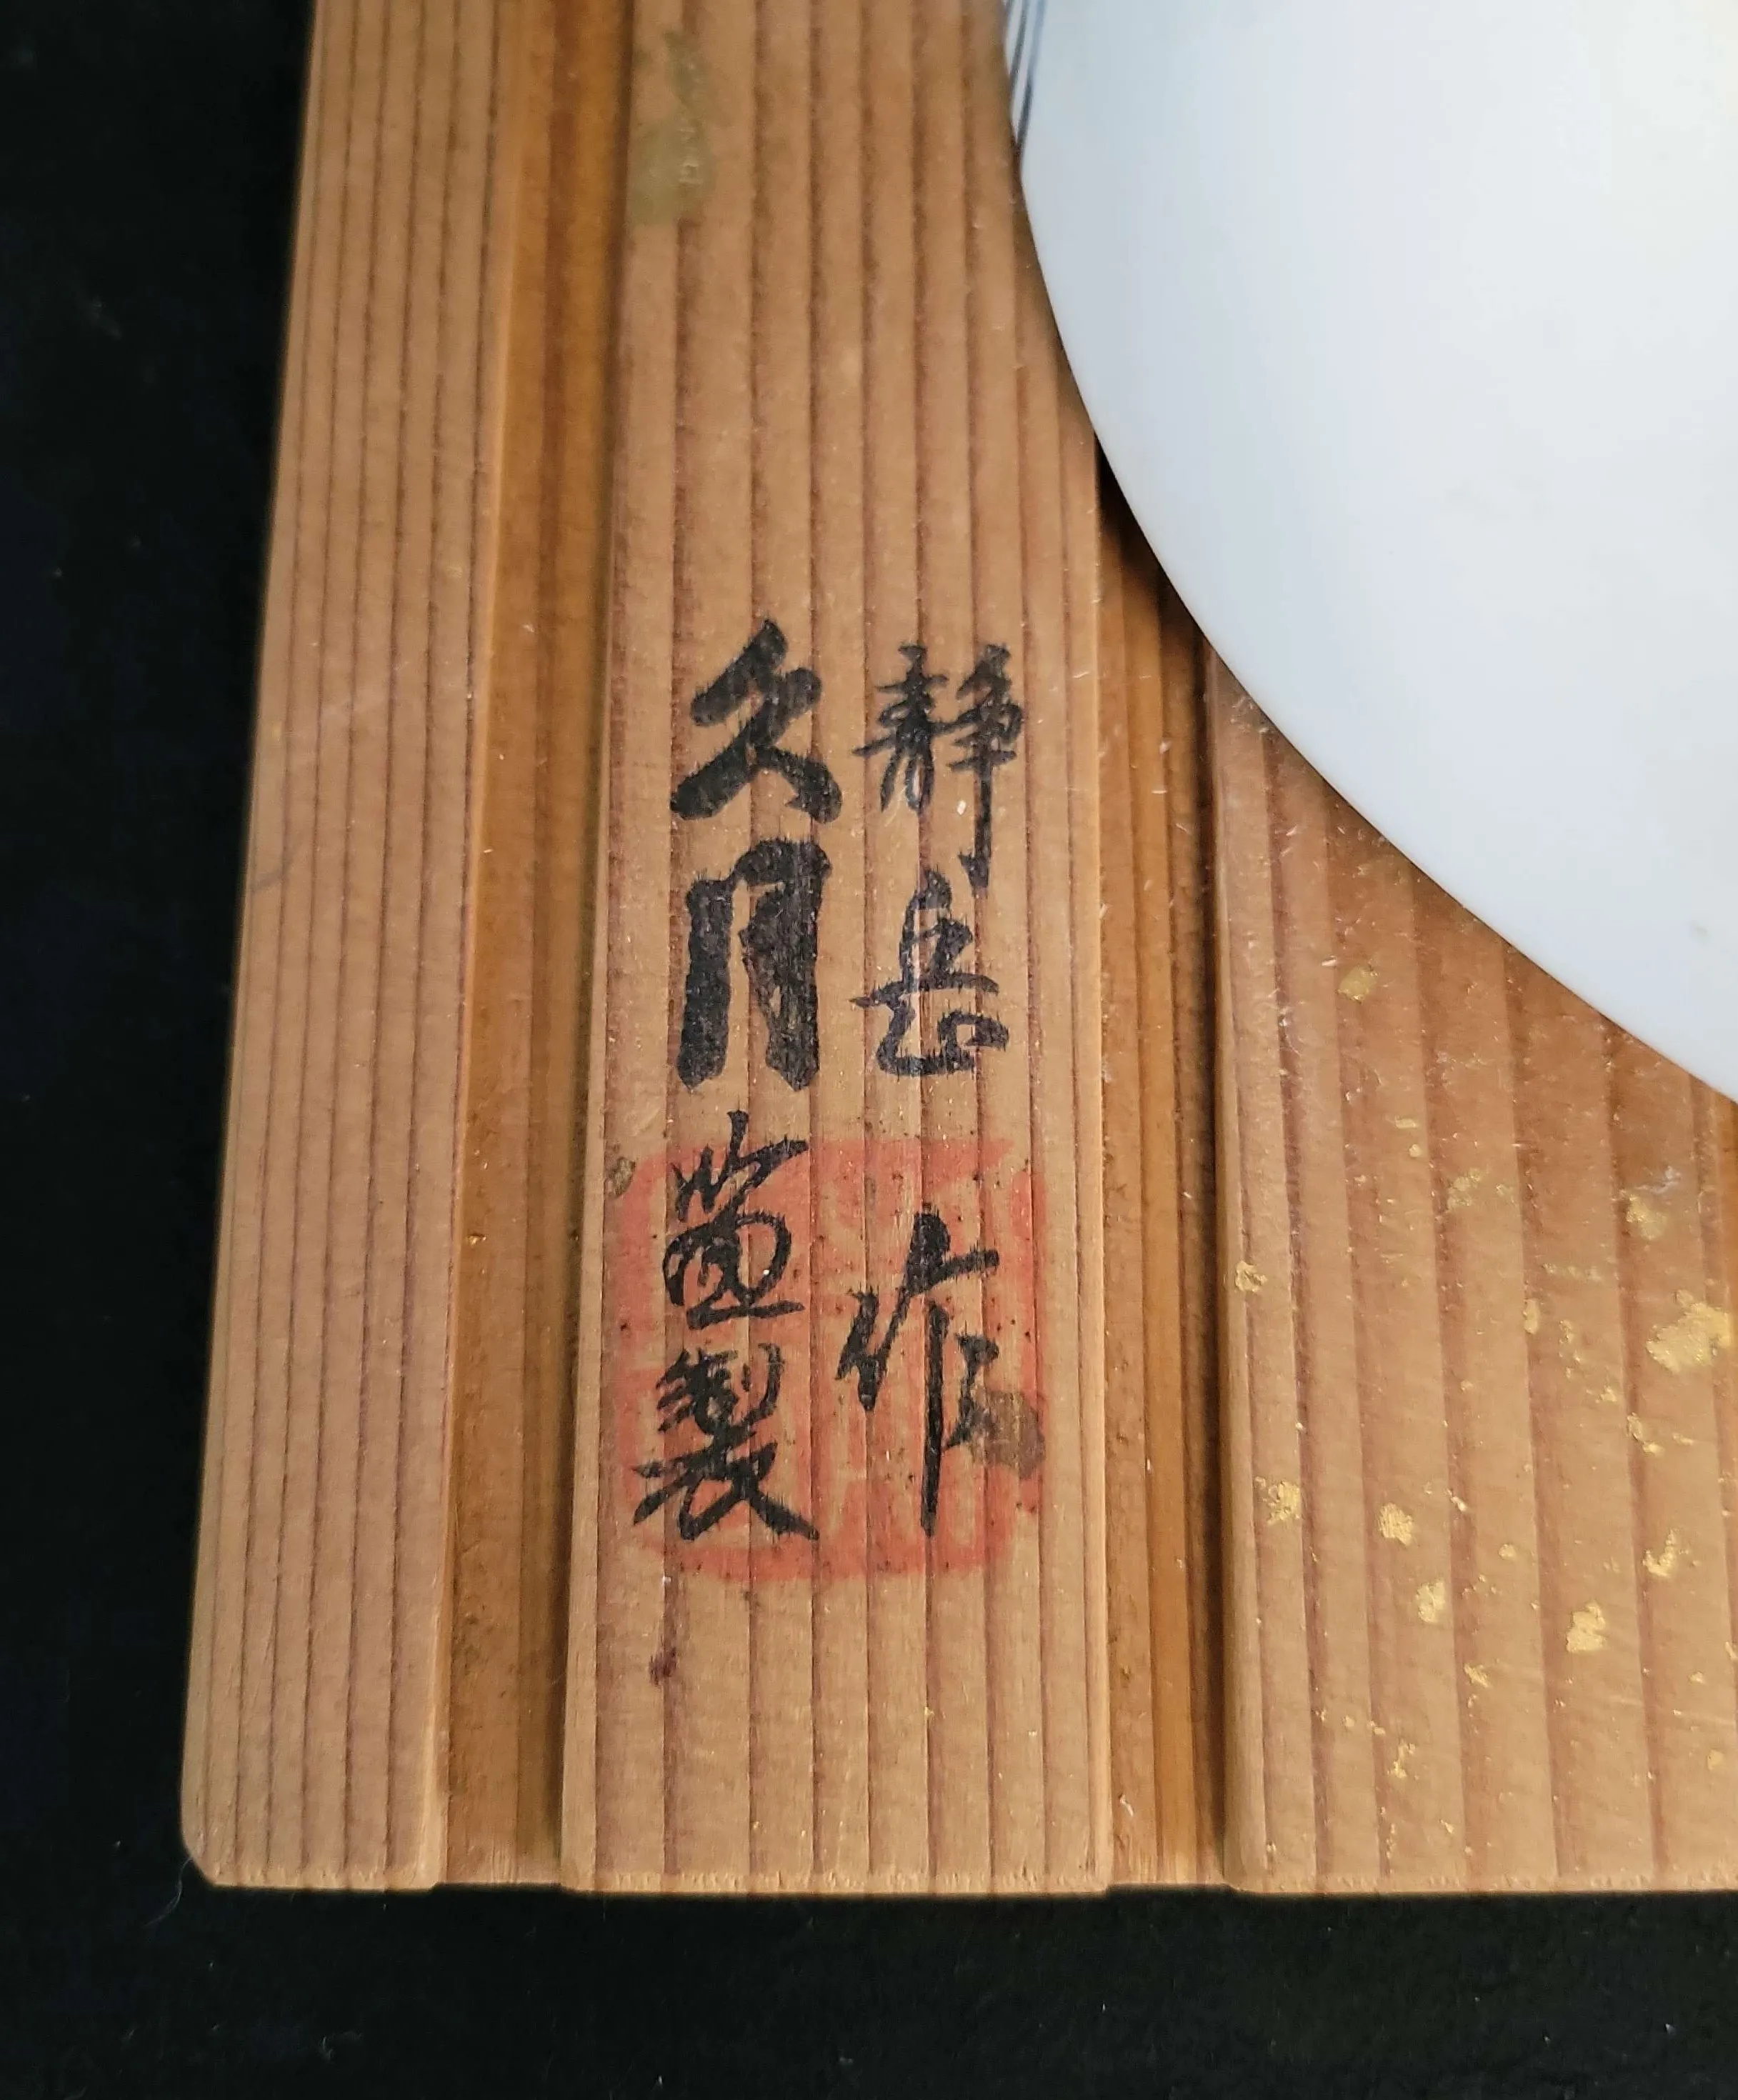 静岳作
久月監製